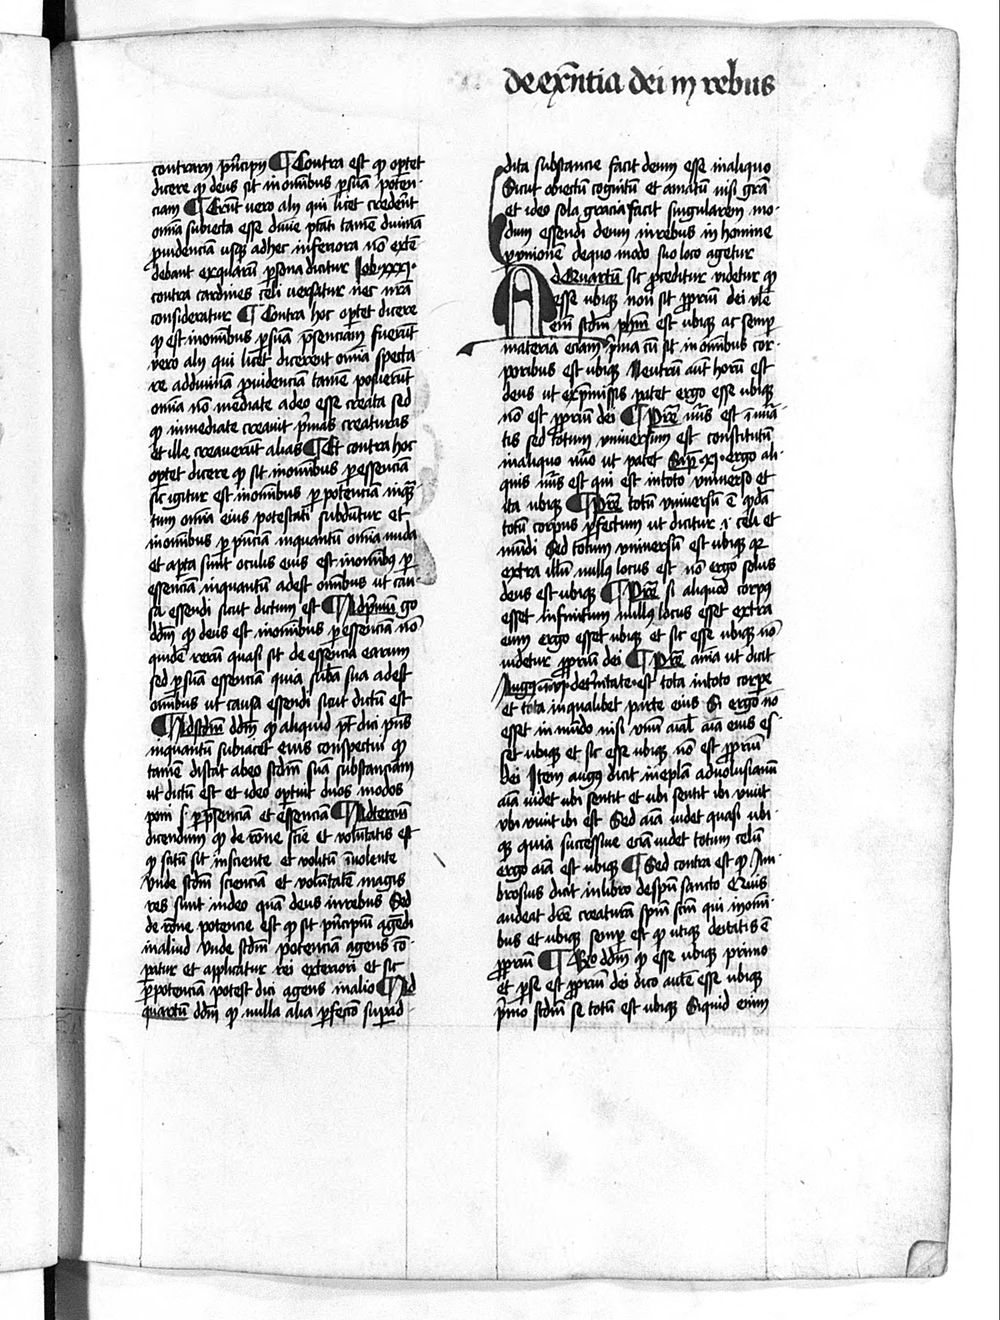 de exn̄tia dei in rebus
contrarij pn̄cipij ¶ Contra est qꝫ oportet
dicere qꝫ deus sit in om̄ibus p suā poten-
ciam ¶ Erūt vero alij qui licet credent
om̄ia subiecta esse diuīe ptāti tamē diuinā
prouidenciā usqꝫ ad hec inferiora nō exte-
debant ex quarū psona dicitur Iob xxij·
contra cardines celi uersatur nec nr̄a
consideratur ¶ Contra hoc optet dicere
qꝫ est in om̄ibus p suā pn̄senciam fuerūt
vero alij qui licet dicerent om̄ia specta-
re ad diuinā prouidenciā tamē posuerūt
om̄ia nō mediate a deo esse creata sed
qꝫ inmediate creauit pmas creaturas
et ille creauerūt alias ¶ Et contra hoc
optet dicere qꝫ sit in om̄ibus p essenciā
sic igitur est in om̄ibus p potenciā inqꝫ-
tum om̄ia eius potestati subdūtur et
in om̄ibus p pn̄ciā inquantū om̄ia nuda
et apta sunt oculis eius est in om̄ibꝫ p
essenciā inquantū adest om̄ibus ut cau-
sa essendi sicut dictum est ¶ Ad pmum go
dd̄m qꝫ deus est in om̄ibus p essenciā nō
quidē rerū quasi sit de essencia earum
sed p suā essenciā quia sb̄a sua adest
om̄ibus ut causa essendi sicut dictū est
¶ Ad scdm dd̄m qꝫ aliquid pt dici pn̄s
inquantū subiacet eius conspectui qꝫ
tamē distat ab eo scdm suā substanciam
ut dictū est et ideo optuit duos modos
poni s· p pn̄senciā et essenciā ¶ Ad tercium
dicendum qꝫ de rōne scīe et volūtatis est
qꝫ scitū sit in sciente et volitū ī volente
vnde scdm scienciā et volūtatē magis
res sunt in deo quā deus in rebus Sed
de rōne potencie est qꝫ sit pn̄cipiū agēdi
in aliud vnde scdm potenciā agens cō-
patur et applicatur rei exteriori et sic
p potenciā potest dici agens in alio ¶ Ad
quartū dd̄m qꝫ nulla alia pfectō supad-
dita substancie facit deum esse in aliquo
Sicut obiectū cognitū et amatū nisi grā
et ideo sola gracia facit singularem mo-
dum essendi deum in rebus in homine
p vnionē de quo modo suo loco agetur
Ad Quartū sic pceditur videtur qꝫ
esse ubiqꝫ non sit ppriū dei vl̄e
em̄ scdm ph̄m est ubiqꝫ ac semp
materia eciam pma cū sit in om̄ibus cor-
poribus est ubiqꝫ Neutrū aūt horū est
deus ut ex pmissis patet ergo esse ubiqꝫ
nō est ppriū dei ¶ Prē nūs est ī nūa-
tis sed totum vniuersum est constitutū
in aliquo nūo ut patet Sap xi· ergo ali-
quis nūs est qui est in toto vniuerso et
ita ubiqꝫ ¶ Prē totū vniuersū ē qdā
totū corpus pfectum ut dicitur ī celi et
mūdi Sed totum vniuersū est ubiqꝫ qr
extra illū nullꝫ locus est nō ergo solus
deus est ubiqꝫ ¶ Prē si aliquod corpꝫ
esset infinitum nullꝫ locus esset extra
eum ergo esset ubiqꝫ et sic esse ubiqꝫ nō
videtur ppriū dei ¶ Prē aīa ut dicit
de tn̄itate est tota in toto corpe
et tota in qualibet parte eius Si ergo nō
esset in mūdo nisi vnū aīal aīa eius es-
set ubiqꝫ et sic esse ubiqꝫ nō est ppriū
dei Item augꝫ dicit in epl̄a ad volusianū
aīa videt ubi sentit et ubi sentit ibi viuit
vbi viuit ibi est Sed aīa videt quasi ubi-
qꝫ quia successiue eciā videt totum celū
ergo aīa est ubiqꝫ ¶ Sed contra est qꝫ Am-
brosius dicit in libro de spū sancto Quis
audeat dicē creaturā spm scm̄ qui in om̄i-
bus et ubiqꝫ semp est qꝫ utiqꝫ deitatis ē
ppriū ¶ Rō dd̄m qꝫ esse ubiqꝫ primo
et p se est ppriū dei dico autē esse ubiqꝫ
pmo scdm se totū est ubiqꝫ Si quid enim